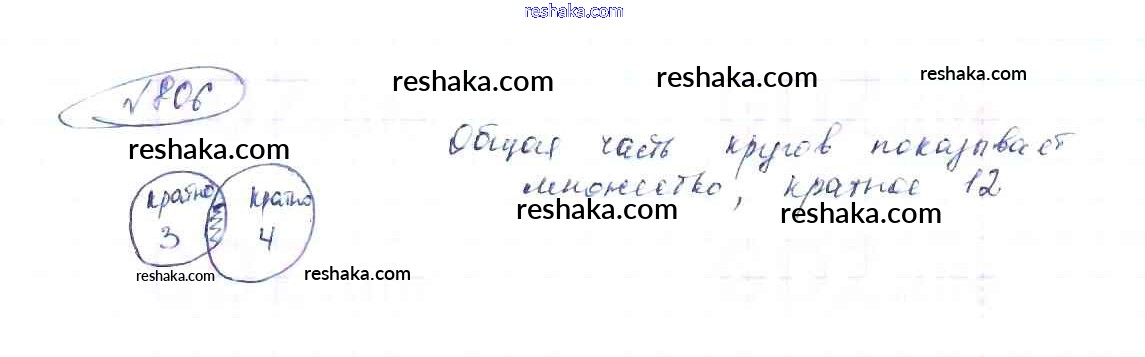 reshaka.com
√806
reshaka.com
reshaka.com
reshaka.com
reshaka.com
Общая часть кругов показывает
множество, кратное 12
reshaka.com
reshaka.com
кратно
3
кратно
4
reshaka.com
reshaka.com